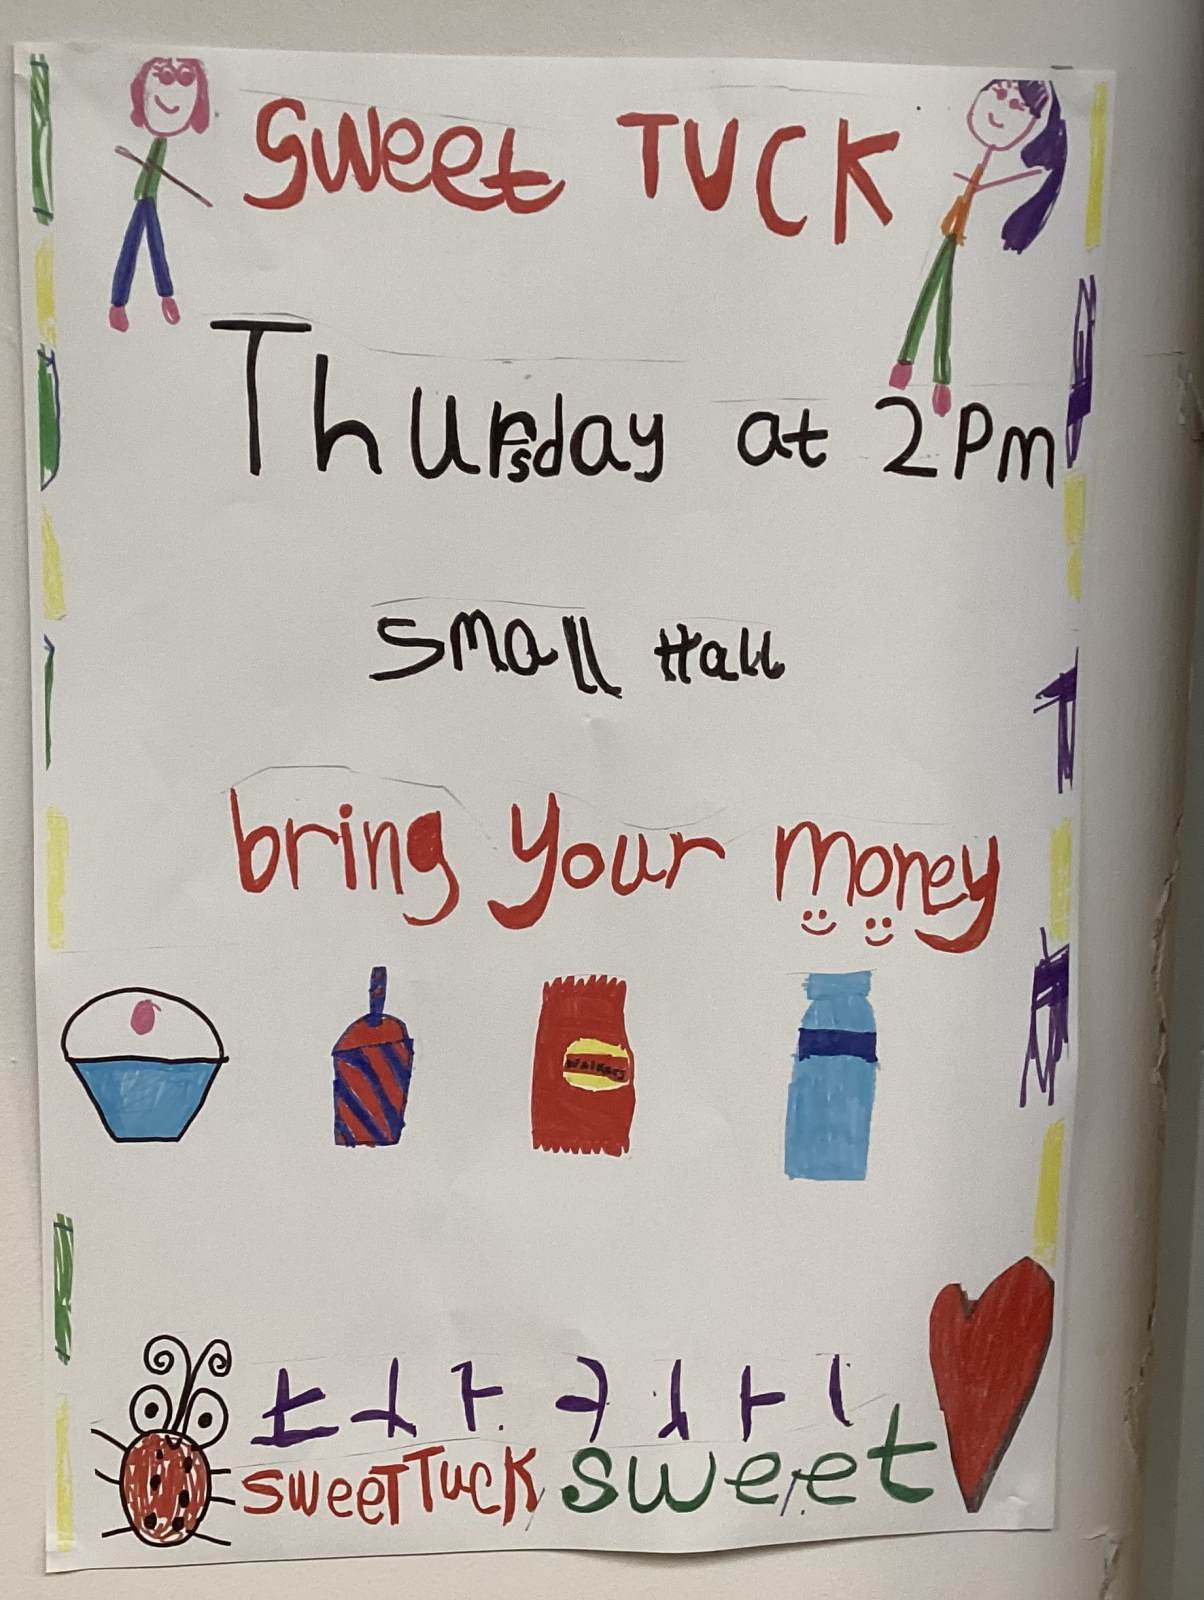 Sweet TUCK
Thursday at 2Pm
small Hall
bring your money
walkers
sweeT Tuck sweet